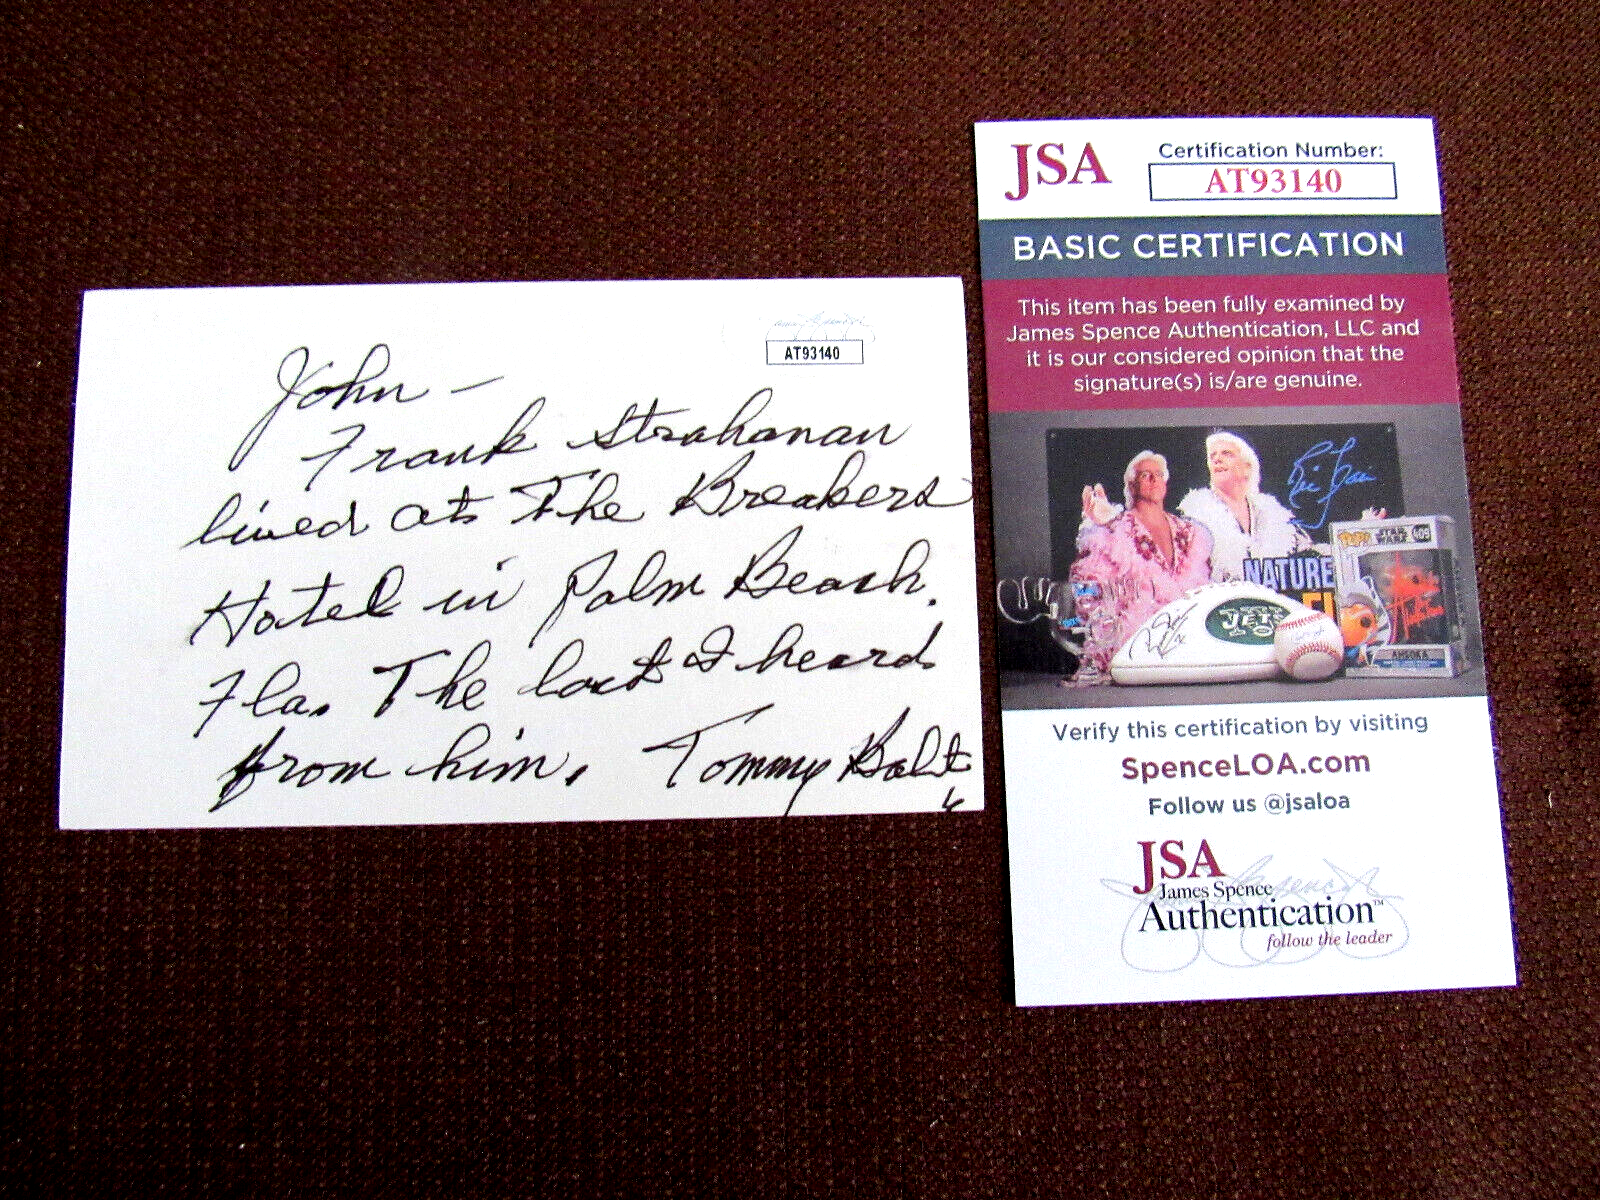 AT93140
John —
Frank Strahanan
lived at The Breakers
Hotel in Palm Beach,
Fla. The last I heard
from him. Tommy Bolt
JSA
Certification Number:
AT93140
BASIC CERTIFICATION
This item has been fully examined by
James Spence Authentication, LLC and
it is our considered opinion that the
signature(s) is/are genuine.
NATURE
JETS
STAR
WARS
409
AHSOKA
Verify this certification by visiting
SpenceLOA.com
Follow us @jsaloa
JSA
James Spence
Authentication™
follow the leader